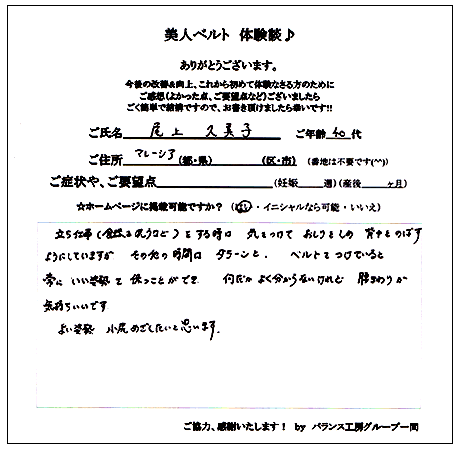 美人ベルト 体験談♪
ありがとうございます。
今後の改善&向上、これから初めて体験なさる方のために
ご感想(よかった点、ご要望点など)ございましたら
ごく簡単で結構ですので、お書き頂けましたら幸いです!!
ご氏名 尾上 久美子 ご年齢 40 代
ご住所 マレーシア (都・県) (区・市) (番地は不要です(^^))
ご症状や、ご要望点 (妊娠 週)(産後 ヶ月)
☆ホームページに掲載可能ですか? (はい・イニシャルなら可能・いいえ)
立ち仕事( 洗うなど)とする時は 気をつけて おしりをしめ 背中をのばす
ようにしていますが その他の時間は ダラーンと. ベルトをつけていると
常に いい姿勢を 保つことができ 何だかよく分からないけれど 腰まわりが
気持ちいいです
よい姿勢 小尻めざしたいと思います.
ご協力、感謝いたします! by バランス工房グループ一同